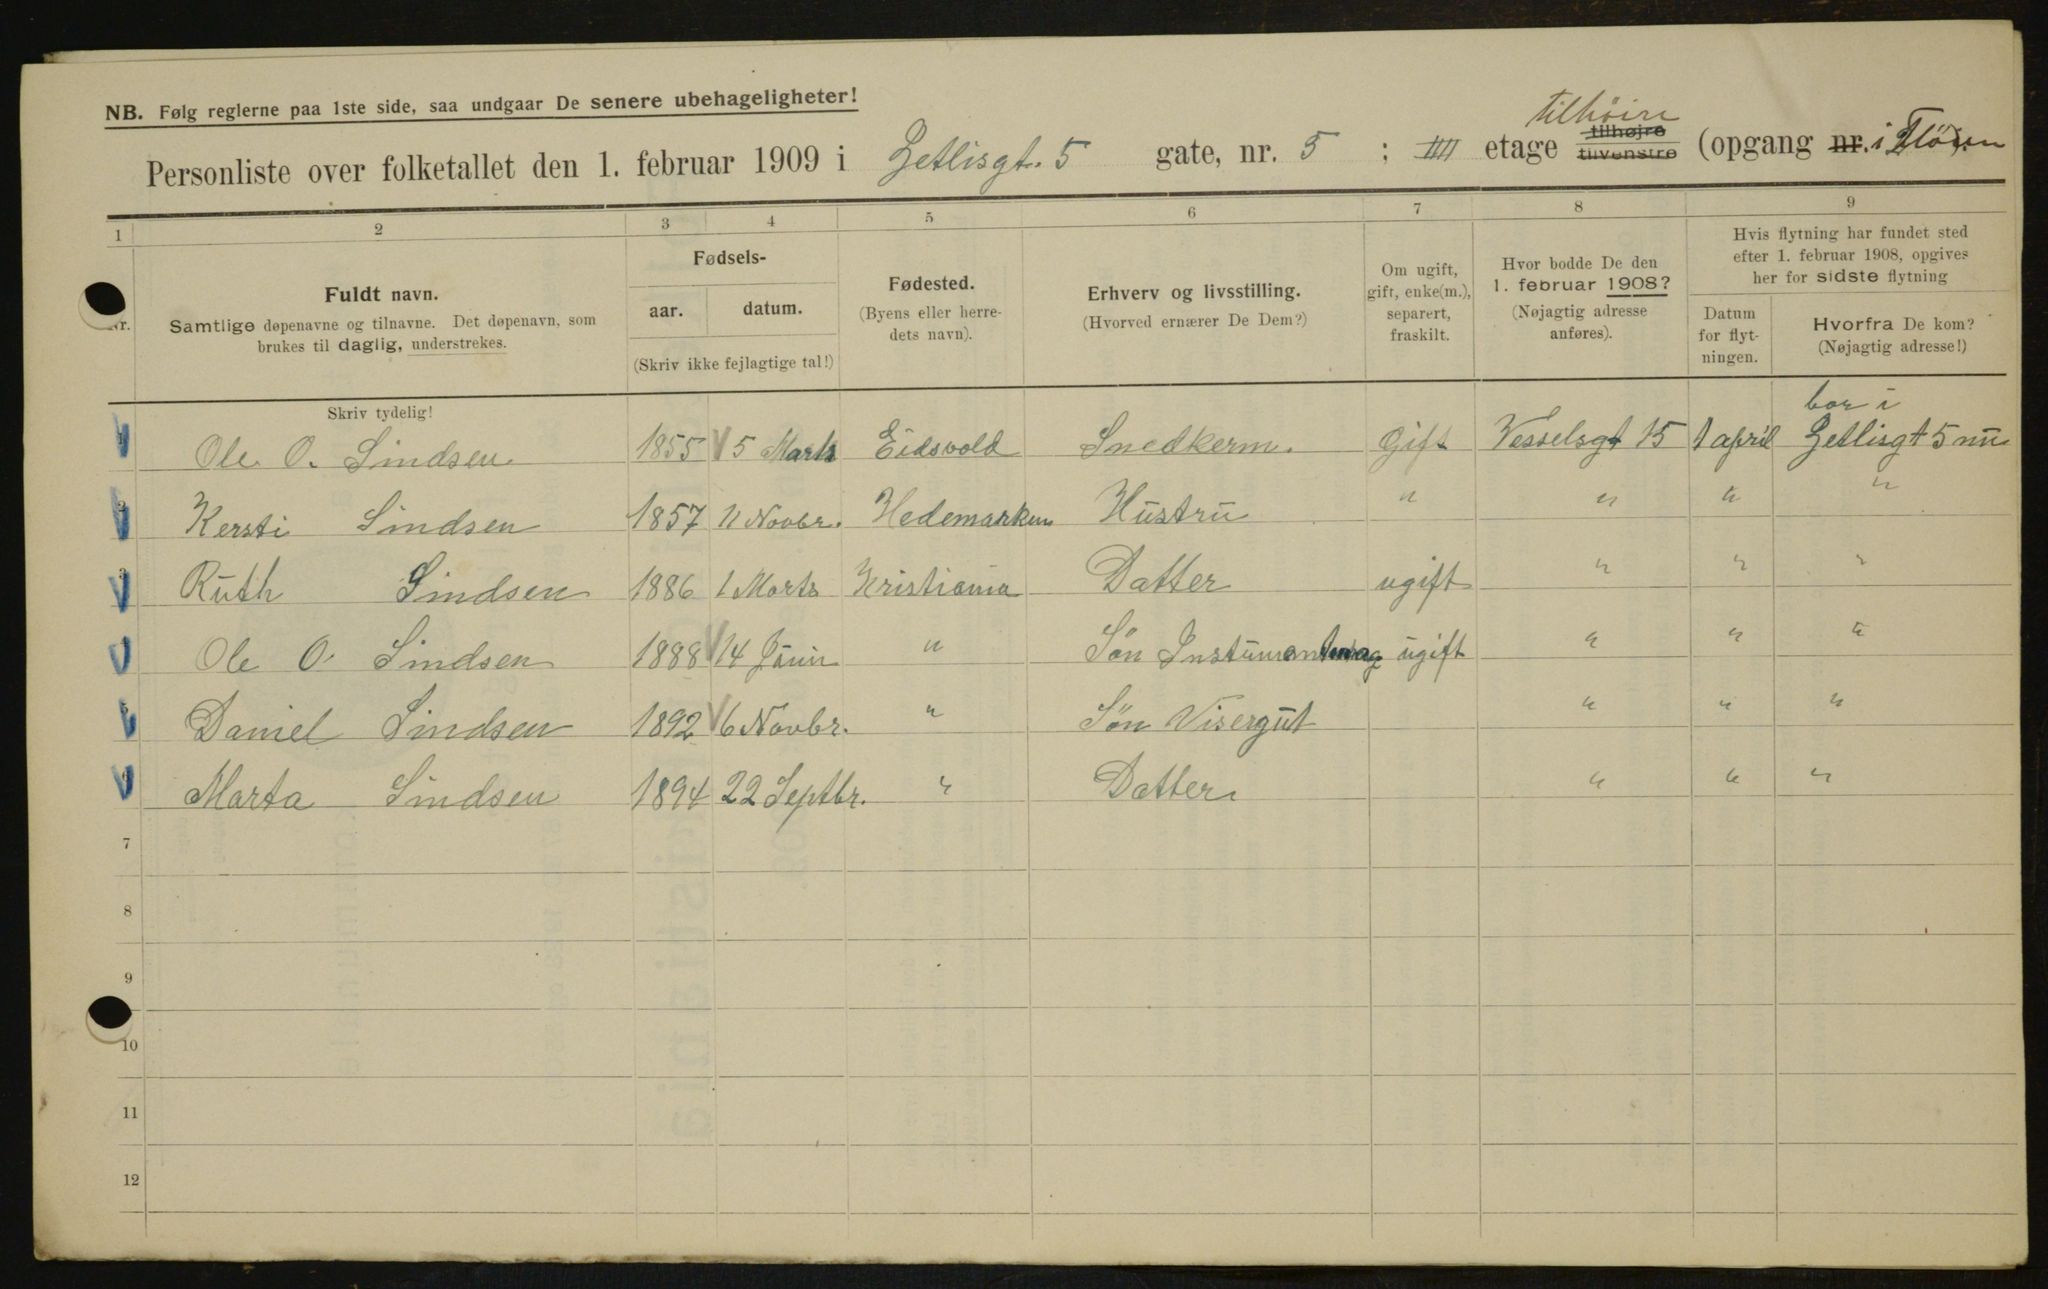 NB. Følg reglerne paa 1ste side, saa undgaar De senere ubehageligheter!
tilhöire
Personliste over folketallet den 1. februar 1909 i Zetlisgt. 5 gate, nr. 5 ; IIII etage tilhøjre tilvenstre (opgang nr. i Flöien
1 2 3 4 5 6 7 8 9
Nr.
Fuldt navn.
Samtlige døpenavne og tilnavne. Det døpenavn, som
brukes til daglig, understrekes.
Skriv tydelig!
Fødsels-
aar. datum.
(Skriv ikke fejlagtige tal!)
Fødested.
(Byens eller herre-
dets navn).
Erhverv og livsstilling.
(Hvorved ernærer De Dem?)
Om ugift,
gift, enke(m.),
separert,
fraskilt.
Hvor bodde De den
1. februar 1908?
(Nøjagtig adresse
anføres).
Hvis flytning har fundet sted
efter 1. februar 1908, opgives
her for sidste flytning
Datum
for flyt-
ningen.
Hvorfra De kom?
(Nøjagtig adresse!)
bor i
1 Ole O. Lindsen 1855 5 Marts Eidsvold Snedkerm. Gift Vesselsgt 15 1 april Zetlisgt 5 nu
2 Kersti Lindsen 1857 11 Novbr. Hedemarken Hustru " " " "
3 Ruth Lindsen 1886 1 Marts Kristiania Datter ugift " " "
Ole O. Lindsen 1888 14 Juni " Sön ugift " " "
5 Daniel Lindsen 1892 6 Novbr. " Sön Visergut " " "
6 Marta Lindsen 1894 22 Septbr. " Datter. " " "
7
8
9
10
11
12